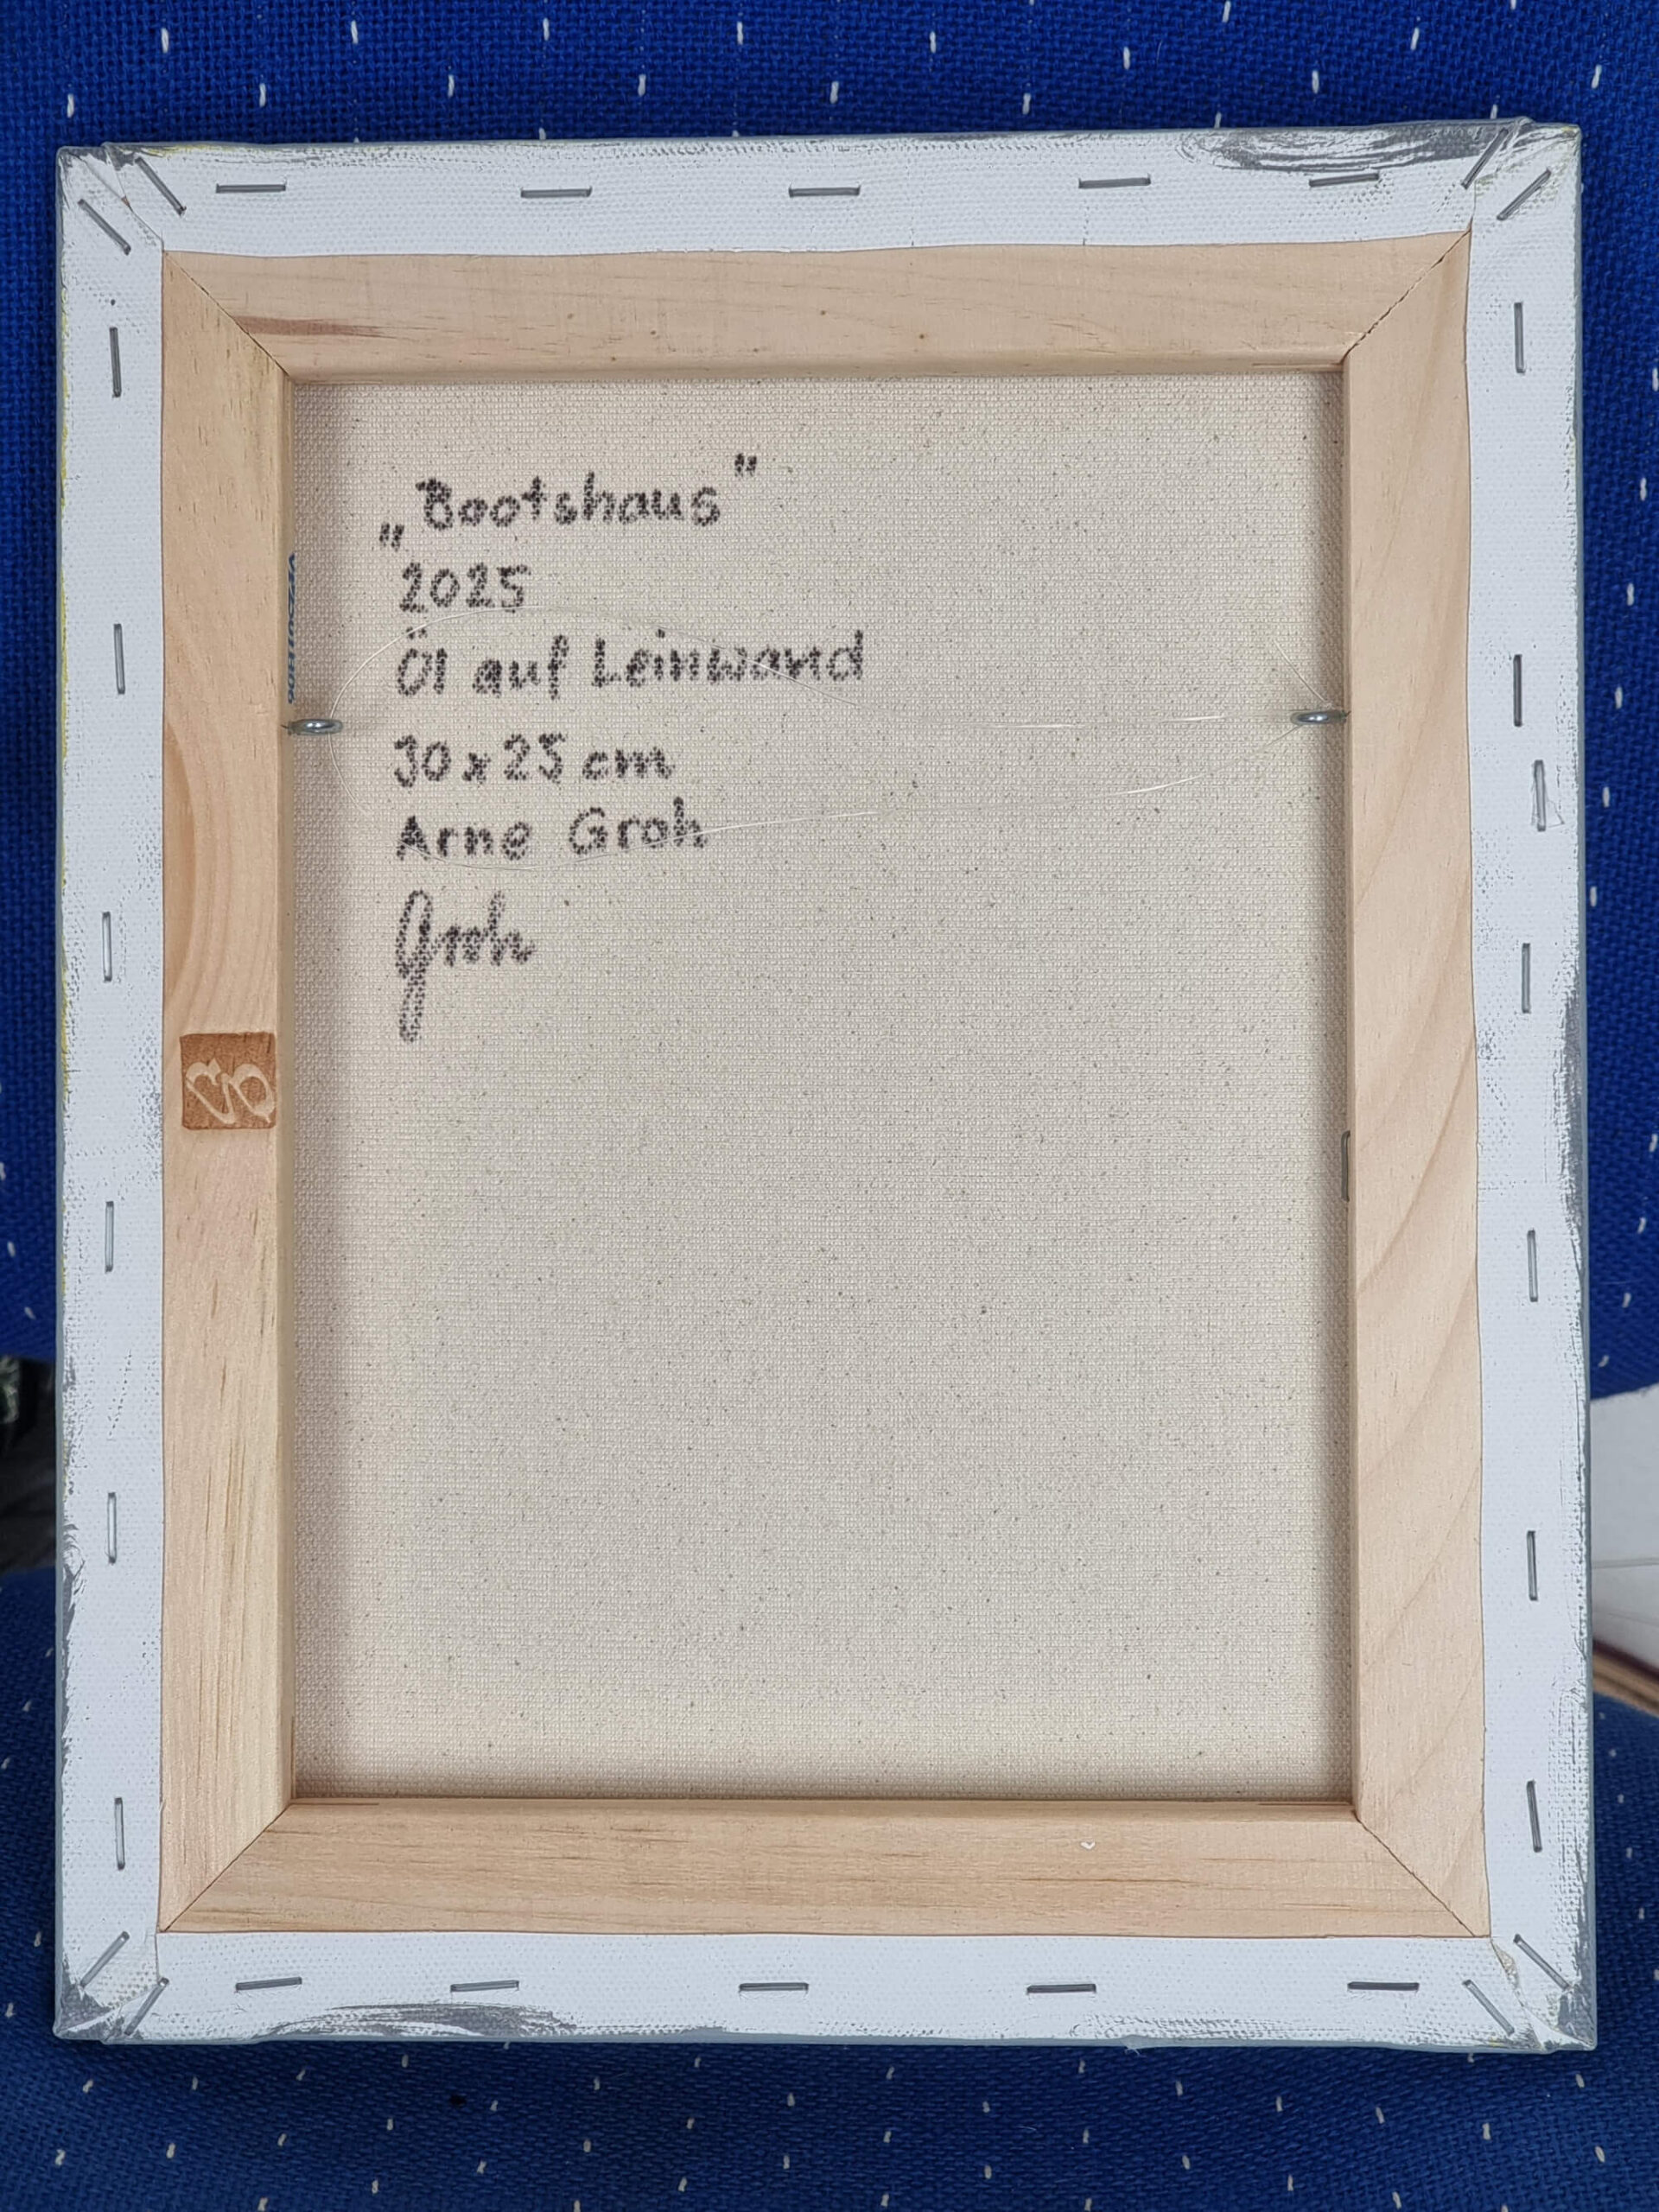 „Bootshaus"
2025
Öl auf Leinwand
30 x 25 cm
Arne Groh
Groh